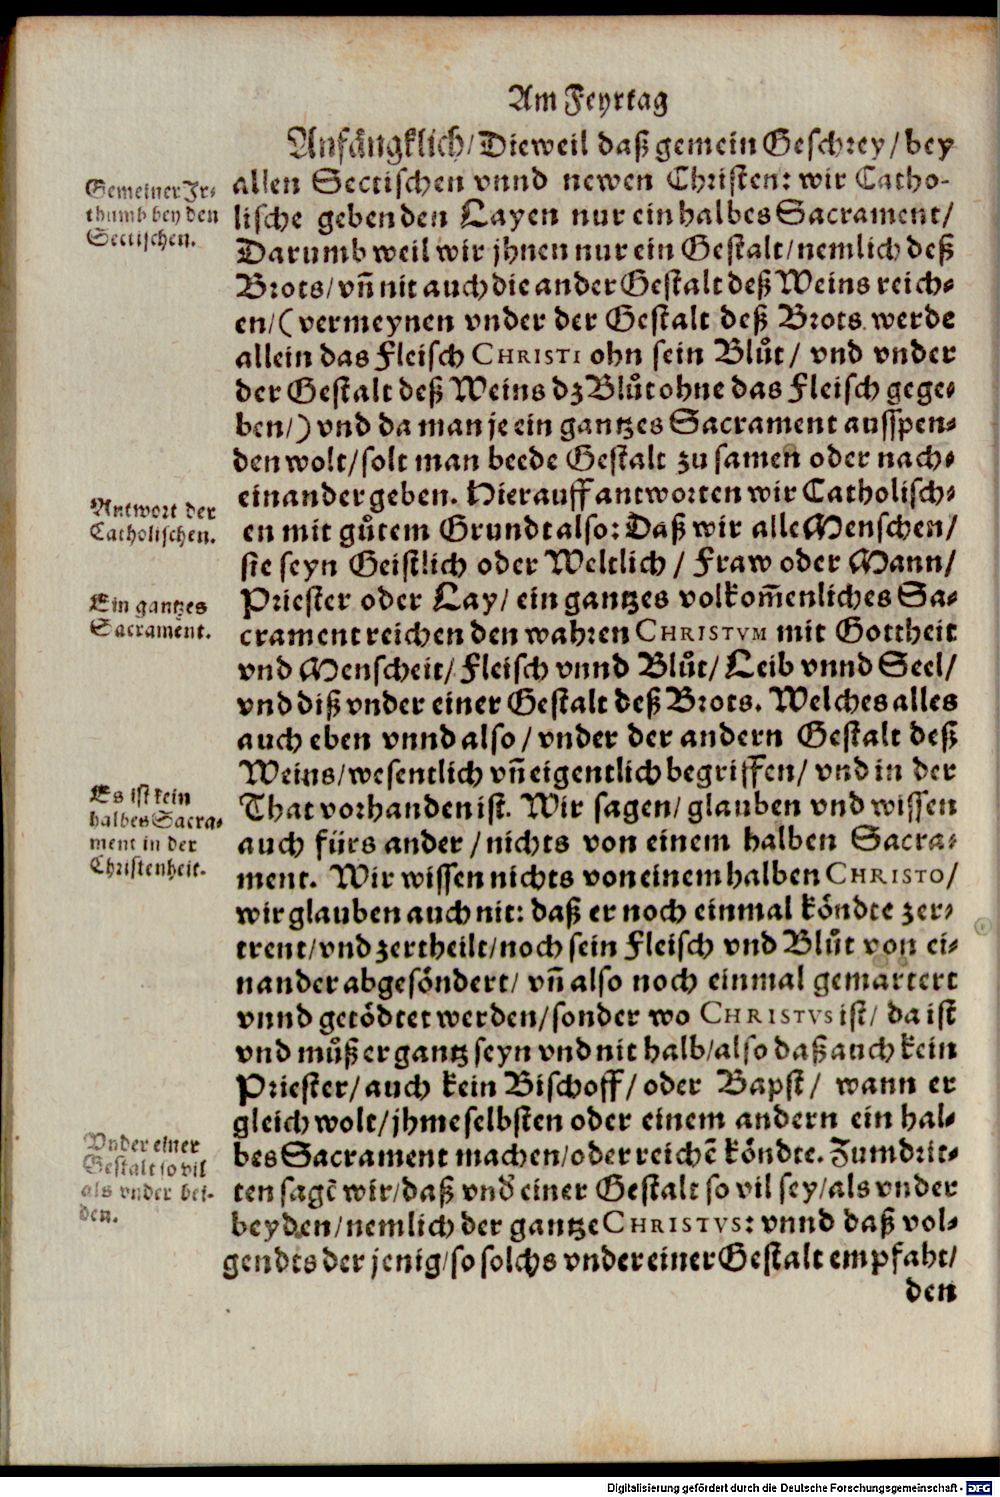 Am Feyrtag
Anfängklich/ Dieweil daß gemein Geschrey/ bey
allen Sectischen vnnd newen Christen: wir Catho-
lische geben den Layen nur ein halbes Sacrament/
Darumb weil wir jhnen nur ein Gestalt/ nemlich deß
Brots/ vn̄ nit auch die ander Gestalt deß Weins reich-
en/ (vermeynen vnder der Gestalt deß Brots werde
allein das Fleisch CHRISTI ohn sein Blůt/ vnd vnder
der Gestalt deß Weins dz Blůt ohne das Fleisch gege-
ben/) vnd da man je ein gantzes Sacrament ausspen-
den wolt/ solt man beede Gestalt zu samen oder nach-
einander geben. Hierauff antworten wir Catholisch-
en mit gůtem Grundt also: Daß wir alle Menschen/
sie seyn Geistlich oder Weltlich/ Fraw oder Mann/
Priester oder Lay/ ein gantzes volkom̄enliches Sa-
crament reichen den wahren CHRISTVM mit Gottheit
vnd Menscheit/ Fleisch vnnd Blůt/ Leib vnnd Seel/
vnd diß vnder einer Gestalt deß Brots. Welches alles
auch eben vnnd also/ vnder der andern Gestalt deß
Weins/ wesentlich vn̄ eigentlich begriffen/ vnd in der
That vorhanden ist. Wir sagen/ glauben vnd wissen
auch fürs ander/ nichts von einem halben Sacra-
ment. Wir wissen nichts von einem halben CHRISTO/
wir glauben auch nit: daß er noch einmal köndte zer-
trent/ vnd zertheilt/ noch sein Fleisch vnd Blůt von ei-
nander abgesöndert/ vn̄ also noch einmal gemartert
vnnd getödtet werden/ sonder wo CHRISTVS ist/ da ist
vnd můß er gantz seyn vnd nit halb/ also daß auch kein
Priester/ auch kein Bischoff/ oder Bapst/ wann er
gleich wolt/ jhme selbsten oder einem andern ein hal-
bes Sacrament machen/ oder reichē köndte. Zum drit-
ten sagē wir/ daß vnd̄ einer Gestalt so vil sey/ als vnder
beyden/ nemlich der gantze CHRISTVS: vnnd daß vol-
gendts der jenig/ so solchs vnder einer Gestalt empfaht/
den
Gemeiner Jr-
thumb bey den
Sectischen.
Antwort der
Catholischen.
Ein gantzes
Sacramēt.
Es ist kein
halbes Sacra-
ment in der
Christenheit.
Vnder einer
Gestalt so vil
als vnder bei-
den.
Digitalisierung gefördert durch die Deutsche Forschungsgemeinschaft - DFG